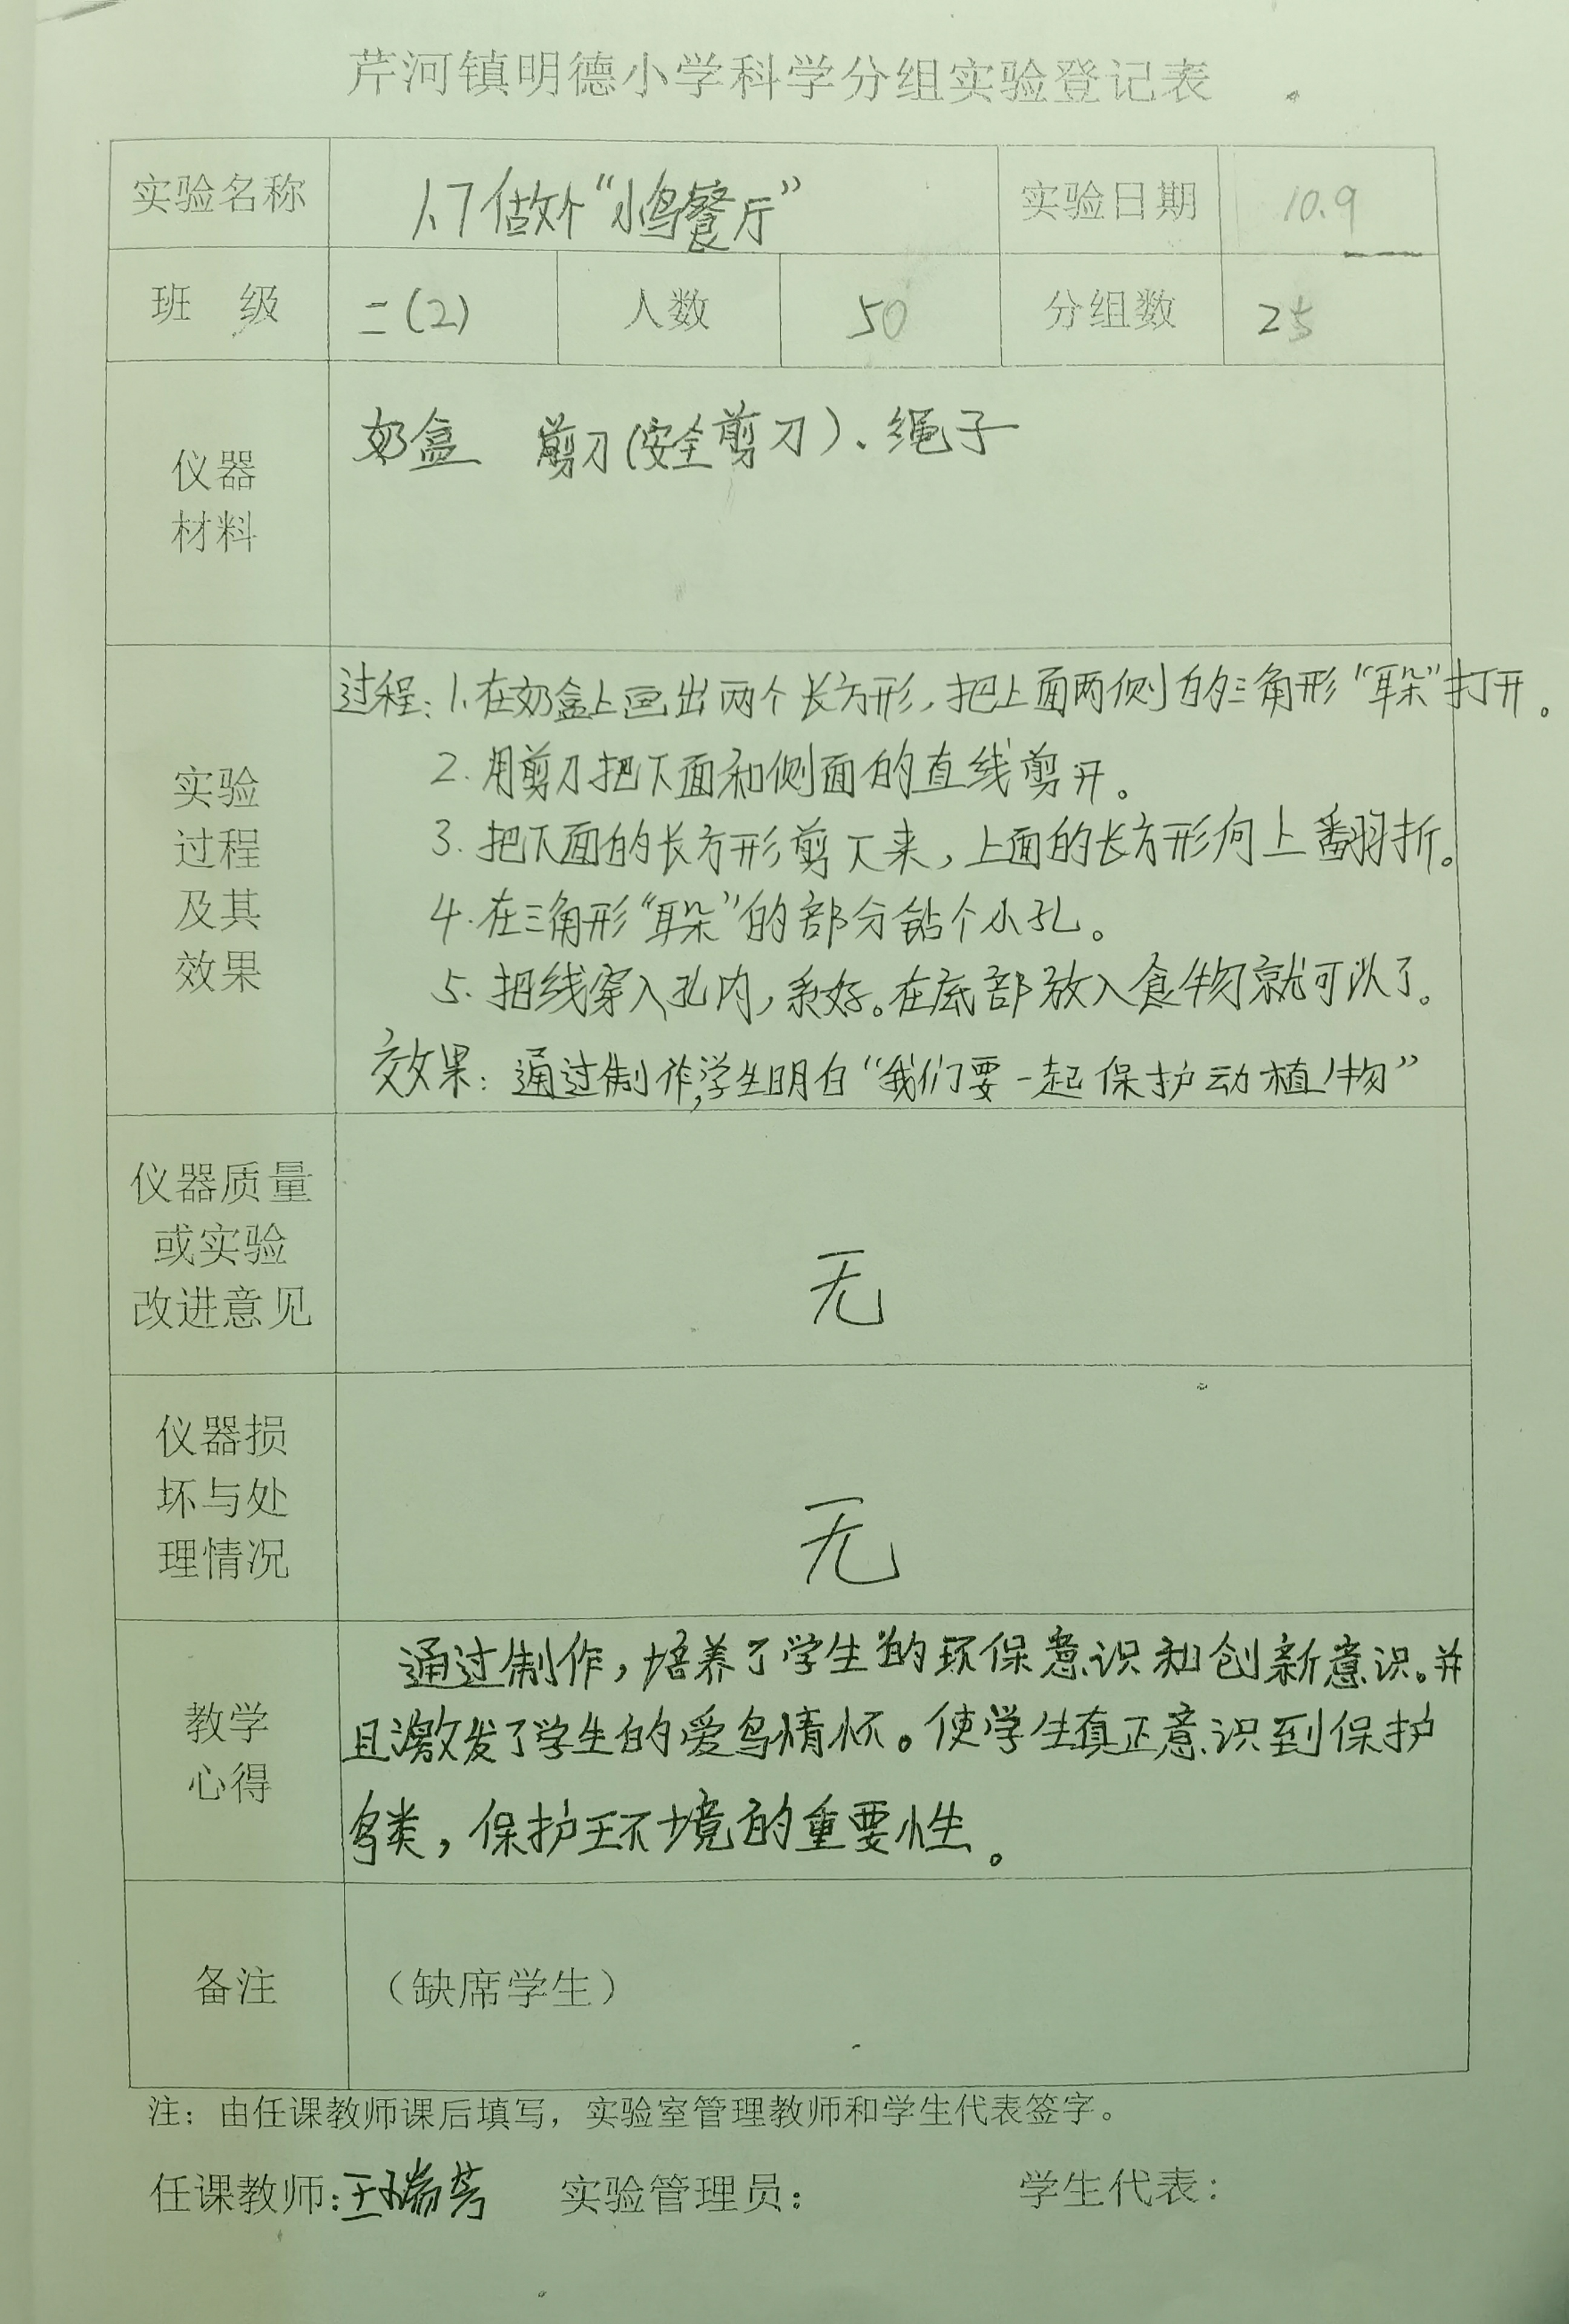 芹河镇明德小学科学分组实验登记表
实验名称 1.7做个“小鸟餐厅” 实验日期 10.9
班 级 二(2) 人数 50 分组数 25
仪器
材料
奶盒 剪刀(安全剪刀)、绳子
实验
过程
及其
效果
过程:1.在奶盒上画出两个长方形,把上面两侧的三角形“耳朵”打开。
2.用剪刀把下面和侧面的直线剪开。
3.把下面的长方形剪下来,上面的长方形向上翻折。
4.在三角形“耳朵”的部分钻个小孔。
5.把线穿入孔内,系好。在底部放入食物就可以了。
效果:通过制作,学生明白“我们要一起保护动植物”
仪器质量
或实验
改进意见
无
仪器损
坏与处
理情况
无
教学
心得
通过制作,培养了学生的环保意识和创新意识。并
且激发了学生的爱鸟情怀。使学生真正意识到保护
鸟类,保护环境的重要性。
备注 (缺席学生)
注:由任课教师课后填写,实验室管理教师和学生代表签字。
任课教师:王瑞芳 实验管理员: 学生代表: